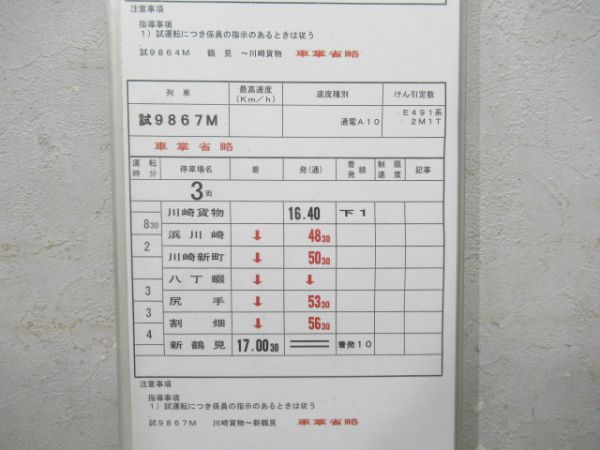 注意事項
指導事項
1) 試運転につき係員の指示のあるときは従う
試9864M 鶴見 ~川崎貨物 車掌省略
列車 最高速度(Km/h) 速度種別 けん引定数
試9867M 通電A10 E491系 2M1T
車掌省略
運転時分 停車場名 着 発(通) 着発線 制限速度 記事
3両
川崎貨物 16.40 下1
8 30 浜川崎 ↓ 48 30
2 川崎新町 ↓ 50 30
八丁畷 ↓ ↓
3 尻手 ↓ 53 30
3 割畑 ↓ 56 30
4 新鶴見 17.00 30 着発10
注意事項
指導事項
1) 試運転につき係員の指示のあるときは従う
試9867M 川崎貨物~新鶴見 車掌省略